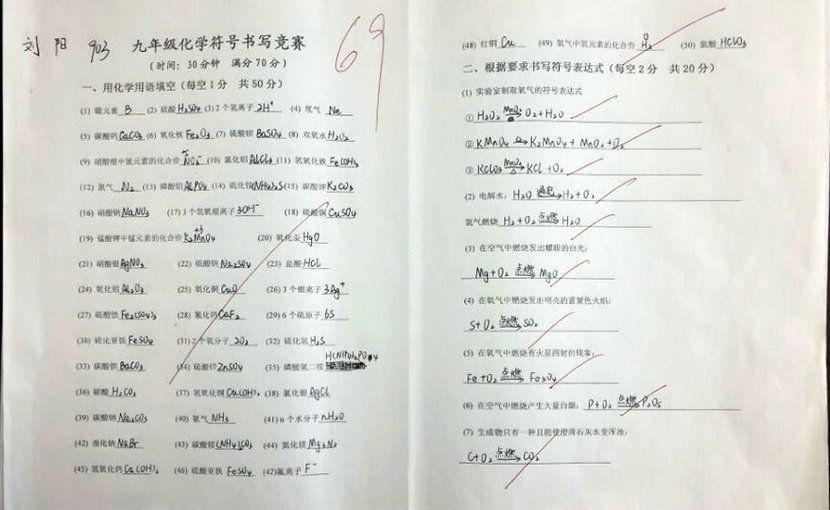 刘阳 903 九年级化学符号书写竞赛 69
(时间:30分钟 满分70分)
一、用化学用语填空(每空1分 共50分)
(1) 硼元素 B (2) 硫酸 H₂SO₄ (3) 2个氢离子 2H⁺ (4) 氖气 Ne
(5) 碳酸钙 CaCO₃ (6) 氧化铁 Fe₂O₃ (7) 硫酸钡 BaSO₄ (8) 双氧水 H₂O₂
(9) 硝酸根中氮元素的化合价 (10) 氯化铝 AlCl₃ (11) 氢氧化铁 Fe(OH)₃
(12) 氮气 N₂ (13) 磷酸铝 AlPO₄ (14) 硫化铵 (NH₄)₂S (15) 碳酸钾 K₂CO₃
(16) 硝酸钠 NaNO₃ (17) 3个氢氧根离子 3OH⁻ (18) 硫酸铜 CuSO₄
(19) 锰酸钾中锰元素的化合价 K₂MnO₄ (20) 氧化汞 HgO
(21) 硝酸银 AgNO₃ (22) 硫酸钠 Na₂SO₄ (23) 盐酸 HCl
(24) 氧化铝 Al₂O₃ (25) 氧化铜 CuO (26) 3个银离子 3Ag⁺
(27) 硫酸铁 Fe₂(SO₄)₃ (28) 氟化钙 CaF₂ (29) 6个硫原子 6S
(30) 硫酸亚铁 FeSO₄ (31) 2个氧分子 2O₂ (32) 硫化氢 H₂S
(33) 碳酸钡 BaCO₃ (34) 硫酸锌 ZnSO₄ (35) 磷酸氢二铵
(36) 碳酸 H₂CO₃ (37) 氢氧化铜 Cu(OH)₂ (38) 氯化银 AgCl
(39) 碳酸钠 Na₂CO₃ (40) 氨气 NH₃ (41) n个水分子 nH₂O
(42) 溴化钠 NaBr (43) 碳酸铵 (NH₄)₂CO₃ (44) 氮化镁 Mg₃N₂
(45) 氢氧化钙 Ca(OH)₂ (46) 硫酸亚铁 FeSO₄ (42) 氟离子 F⁻
(48) 红铜 Cu (49) 氢气中氢元素的化合价 (50) 氯酸 HClO₃
二、根据要求书写符号表达式(每空2分 共20分)
(1) 实验室制取氧气的符号表达式
① H₂O₂ MnO₂→ O₂+H₂O
② KMnO₄ △→ K₂MnO₄ + MnO₂ + O₂
③ KClO₃ MnO₂/△→ KCl + O₂
(2) 电解水: H₂O 通电→ H₂ + O₂
氢气燃烧 H₂ + O₂ 点燃→ H₂O
(3) 在空气中燃烧发出耀眼的白光:
Mg + O₂ 点燃→ MgO
(4) 在氧气中燃烧发出明亮的蓝紫色火焰:
S + O₂ 点燃→ SO₂
(5) 在氧气中燃烧有火星四射的现象:
Fe + O₂ 点燃→ Fe₃O₄
(6) 在空气中燃烧产生大量白烟: P + O₂ 点燃→ P₂O₅
(7) 生成物只有一种且能使澄清石灰水变浑浊:
C + O₂ 点燃→ CO₂